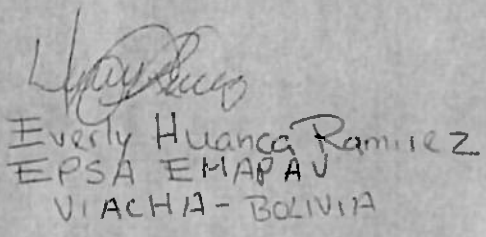 Everly Huanca Ramirez
EPSA EMAPAV
VIACHA - BOLIVIA